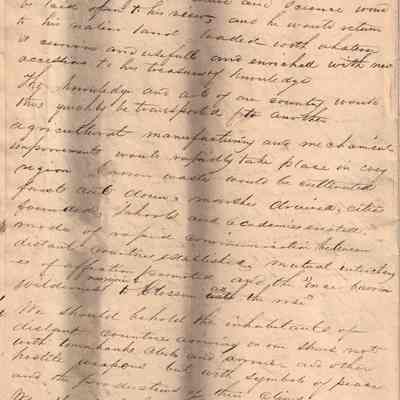 be laid open to his view, and he would return
to his native land loaded with whatever
is curious and usefull and enriched with new
accessions to his treasury of knowledge
The knowledge and arts of one country would
thus quickly be transported to another
agricultural manufacturing and mechanical
improvements would rapidly take place in every
region barren wastes would be cultivated
forests cut down, marshes drained, cities
founded, schools and academies erected
modes of rapid communication between
distant countries established, mutual interchang
es of affection promoted, and the "once barren
wilderness made to blossom as the rose"
We should behold the inhabitants of
distant countries arriving on our shores not
with tomahawks clubs and and other
hostile weapons but with symbols of peace
and the productions of their climes